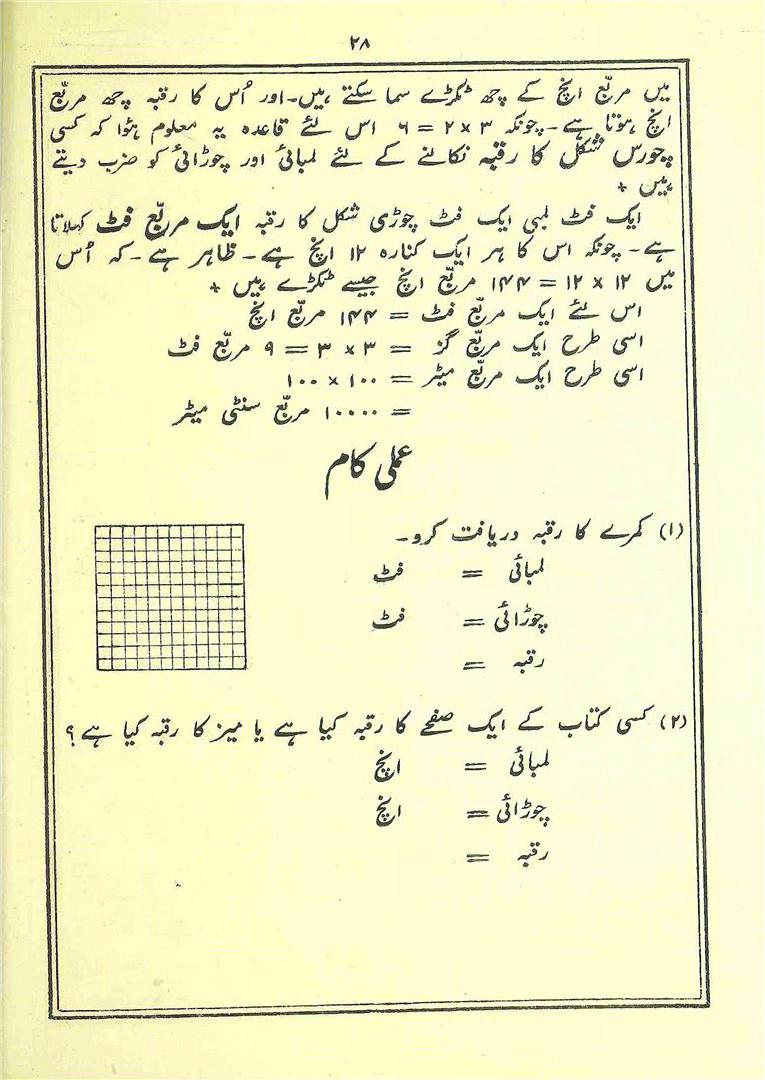 ۲۸
میں مربّع انچ کے چھ ٹکڑے سما سکتے ہیں۔ اور اُس کا رقبہ چھ مربّع
انچ ہوتا ہے۔ چونکہ ۳ × ۲ = ۶ اس لئے قاعدہ یہ معلوم ہؤا کہ کسی
چورس شکل کا رقبہ نکالنے کے لئے لمبائی اور چوڑائی کو ضرب دیتے
ہیں +
ایک فٹ لمبی ایک فٹ چوڑی شکل کا رقبہ ایک مربّع فٹ کہلاتا
ہے۔ چونکہ اس کا ہر ایک کنارہ ۱۲ انچ ہے۔ ظاہر ہے۔ کہ اُس
میں ۱۲ × ۱۲ = ۱۴۴ مربّع انچ جیسے ٹکڑے ہیں +
اس لئے ایک مربّع فٹ = ۱۴۴ مربّع انچ
اسی طرح ایک مربّع گز = ۳ × ۳ = ۹ مربّع فٹ
اسی طرح ایک مربّع میٹر = ۱۰۰ × ۱۰۰
= ۱۰۰۰۰ مربّع سنٹی میٹر
عملی کام
(۱) کمرے کا رقبہ دریافت کرو۔
لمبائی = فٹ
چوڑائی = فٹ
رقبہ =
(۲) کسی کتاب کے ایک صفحے کا رقبہ کیا ہے یا میز کا رقبہ کیا ہے؟
لمبائی = انچ
چوڑائی = انچ
رقبہ =